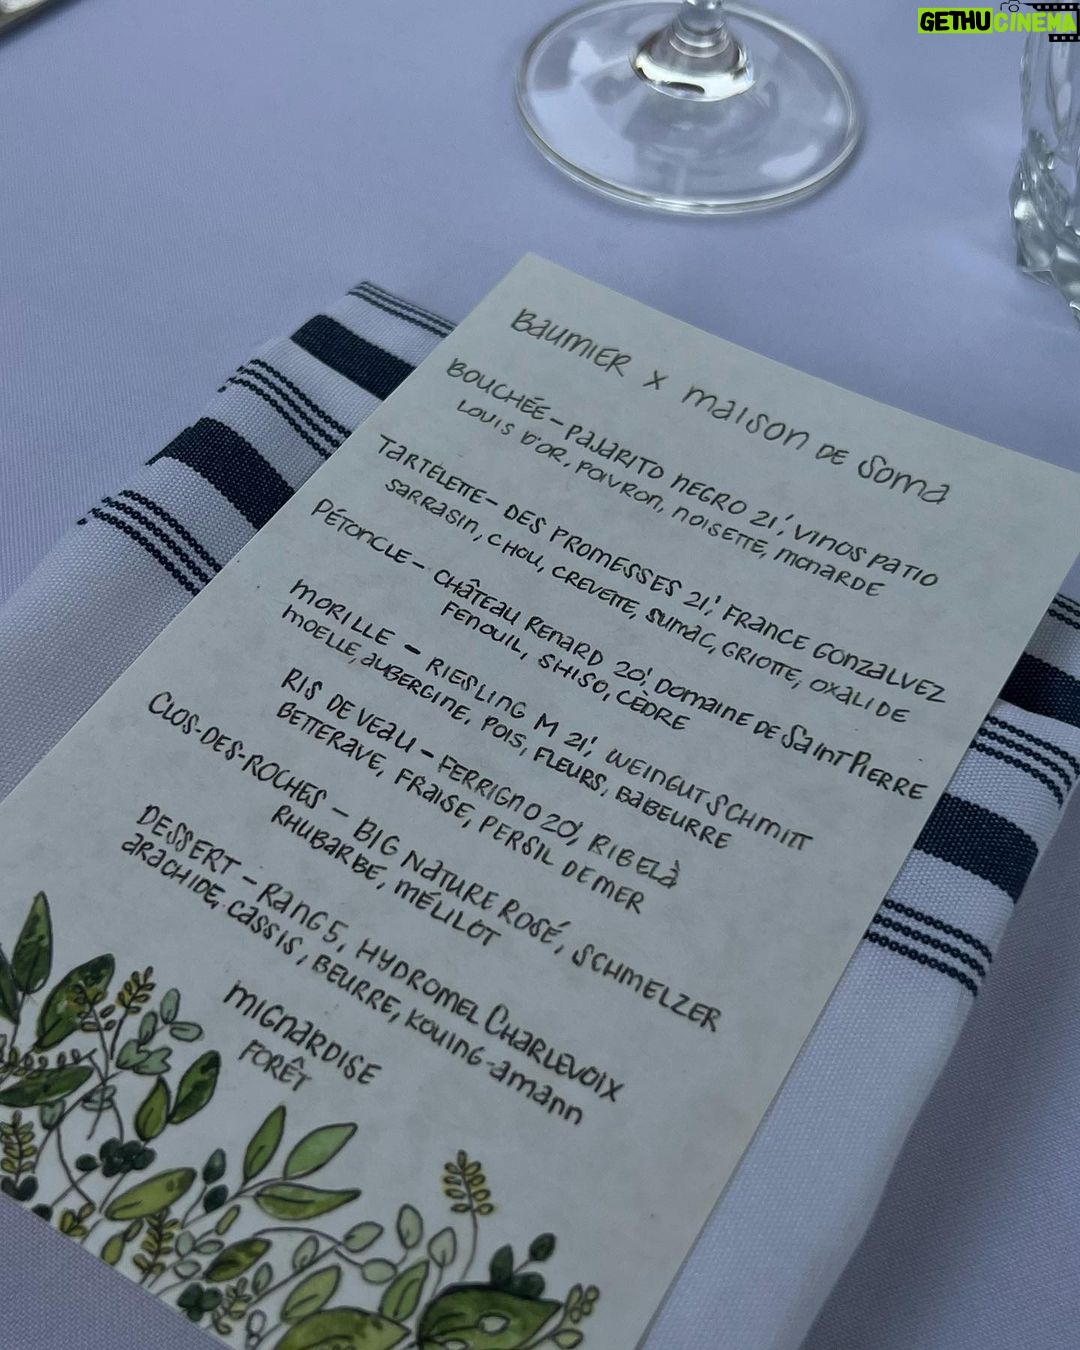 GETHUCINEMA
BAUMIER x MAISON DE SOMA
BOUCHÉE - PAJARITO NEGRO 21', VINOS PATIO
LOUIS D'OR, POIVRON, NOISETTE, MONARDE
TARTELETTE - DES PROMESSES 21', FRANCE GONZALVEZ
SARRASIN, CHOU, CREVETTE, SUMAC, GRIOTTE, OXALIDE
PÉTONCLE - CHÂTEAU RENARD 20', DOMAINE DE SAINT PIERRE
FENOUIL, SHISO, CÈDRE
MORILLE - RIESLING M 21', WEINGUT SCHMITT
MOELLE, AUBERGINE, POIS, FLEURS, BABEURRE
RIS DE VEAU - FERRIGNO 20', RIBELÀ
BETTERAVE, FRAISE, PERSIL DE MER
CLOS-DES-ROCHES - BIG NATURE ROSÉ, SCHMELZER
RHUBARBE, MÉLILOT
DESSERT - RANG 5, HYDROMEL CHARLEVOIX
ARACHIDE, CASSIS, BEURRE, KOUING-AMANN
MIGNARDISE
FORÊT